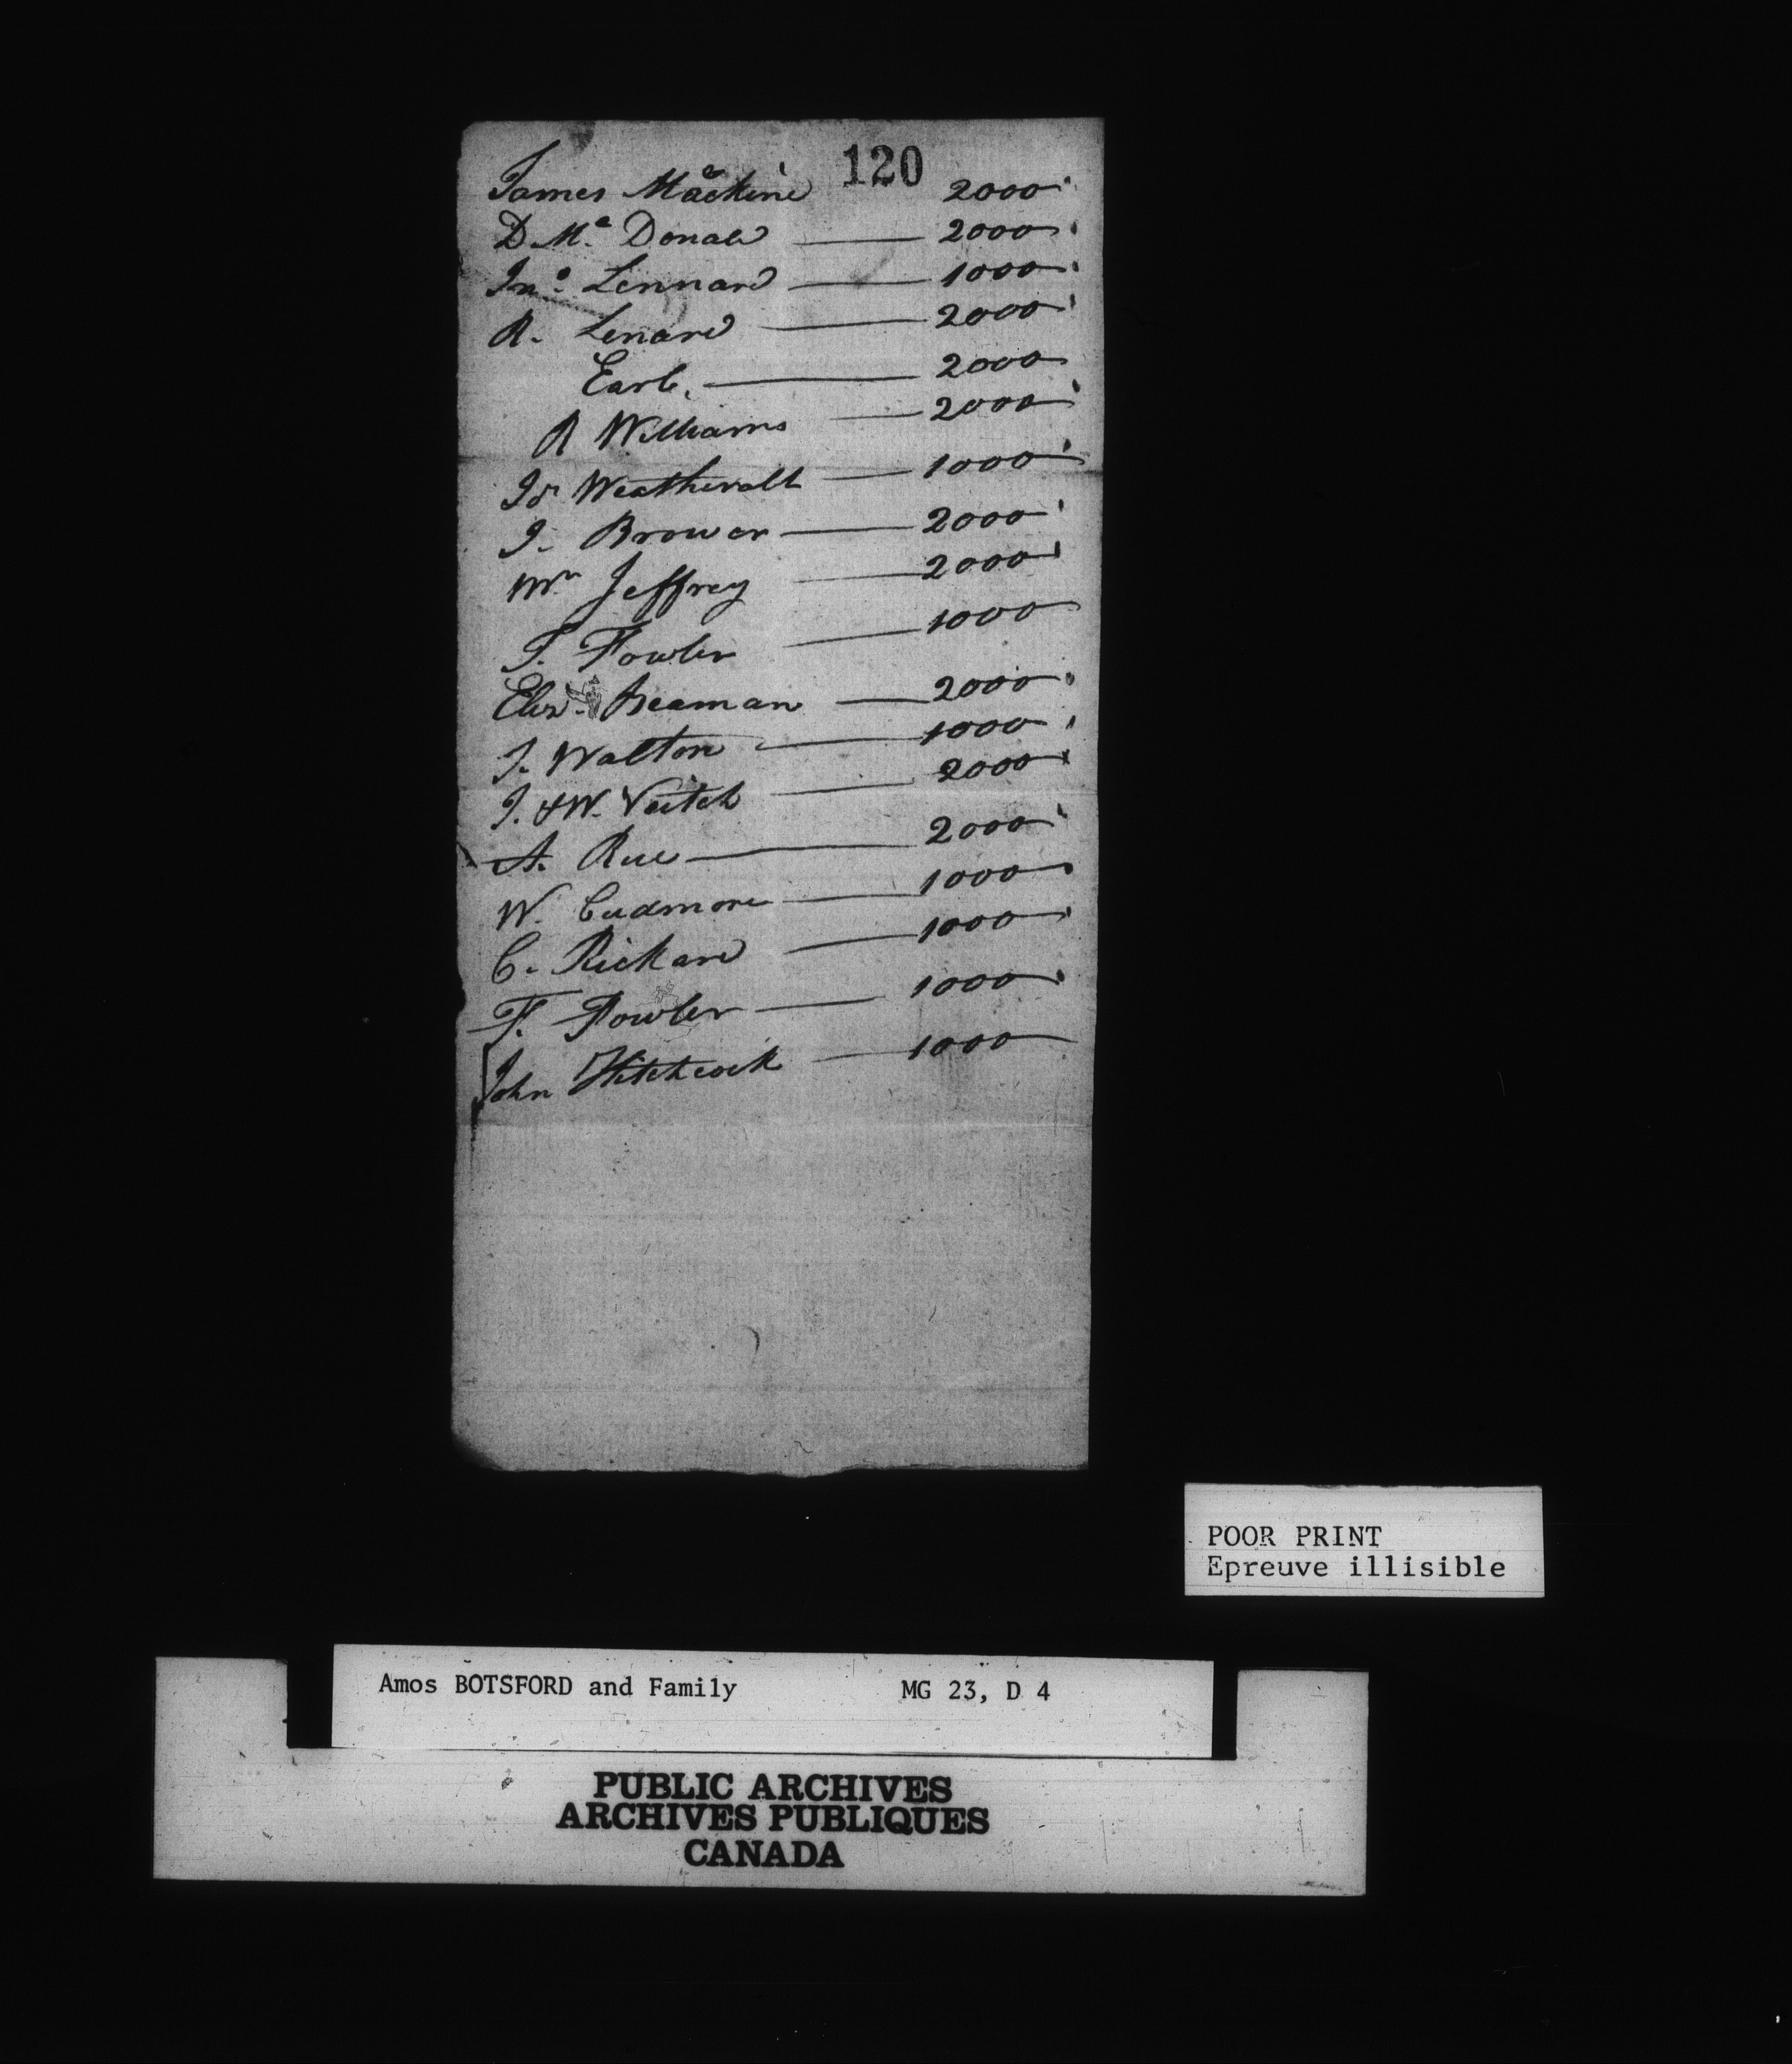 120
James McMackin 2000
D Mc Donald — 2000
Jno. Lennard — 1000
R. Lenard — 2000
Earl. — 2000
R Williams — 2000
Js Weatherall — 1000
J. Brower — 2000
Mr Jeffrey — 2000
T. Fowler — 1000
Elez. Beaman — 2000
J. Walton — 1000
J. & W. Veitch — 2000
A. Rue — 2000
W. Cudmore — 1000
C. Rickard — 1000
F. Fowler — 1000
John Hitchcock — 1000
POOR PRINT
Epreuve illisible
Amos BOTSFORD and Family MG 23, D 4
PUBLIC ARCHIVES
ARCHIVES PUBLIQUES
CANADA